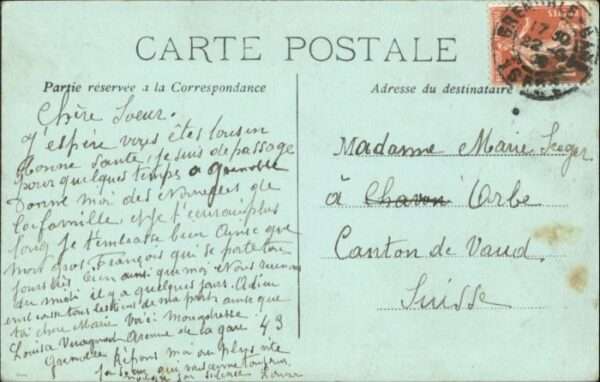 CARTE POSTALE
Partie réservée a la Correspondance
Adresse du destinataire
GRENOBLE
17 30
22
Chère Soeur.
J'espère vous êtes tous en
Bonne Santé, je suis de passage
pour quelques temps a Grenoble
Donne moi des Nouvelles de
la famille et je t'ecrirai plus
long je t'embrasse bien Ainsi que
mon gros François qui se porte tou
jours très bien ainsi que moi Nous
du midi il y a quelques jours. Adieu
tous les tiens de ma part ainsi que
toi chère Marie Voici mon adresse
Louisa Avenue de la gare 43
Grenoble Répons moi au plus vite
ta Soeur qui
Madame Marie
à Chavon Orbe
Canton de Vaud
Suisse